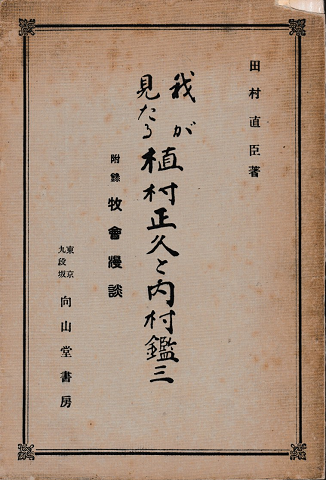 田村直臣著
我が
見たる
植村正久と内村鑑三
附錄 牧會漫談
東京
九段坂
向山堂書房